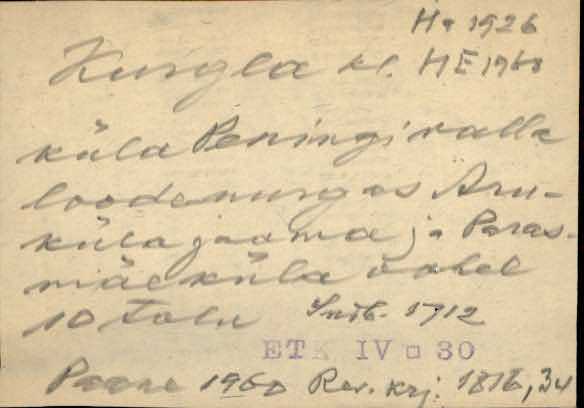 Ha 1926
Kurgla kl. HE 1960
küla Peningi valla
loodenurgas Aru-
küla jaama ja Paras-
mäe küla vahel
10 talu 1712
ETK IV □ 30
1960 Rev. krj. 1816, 34